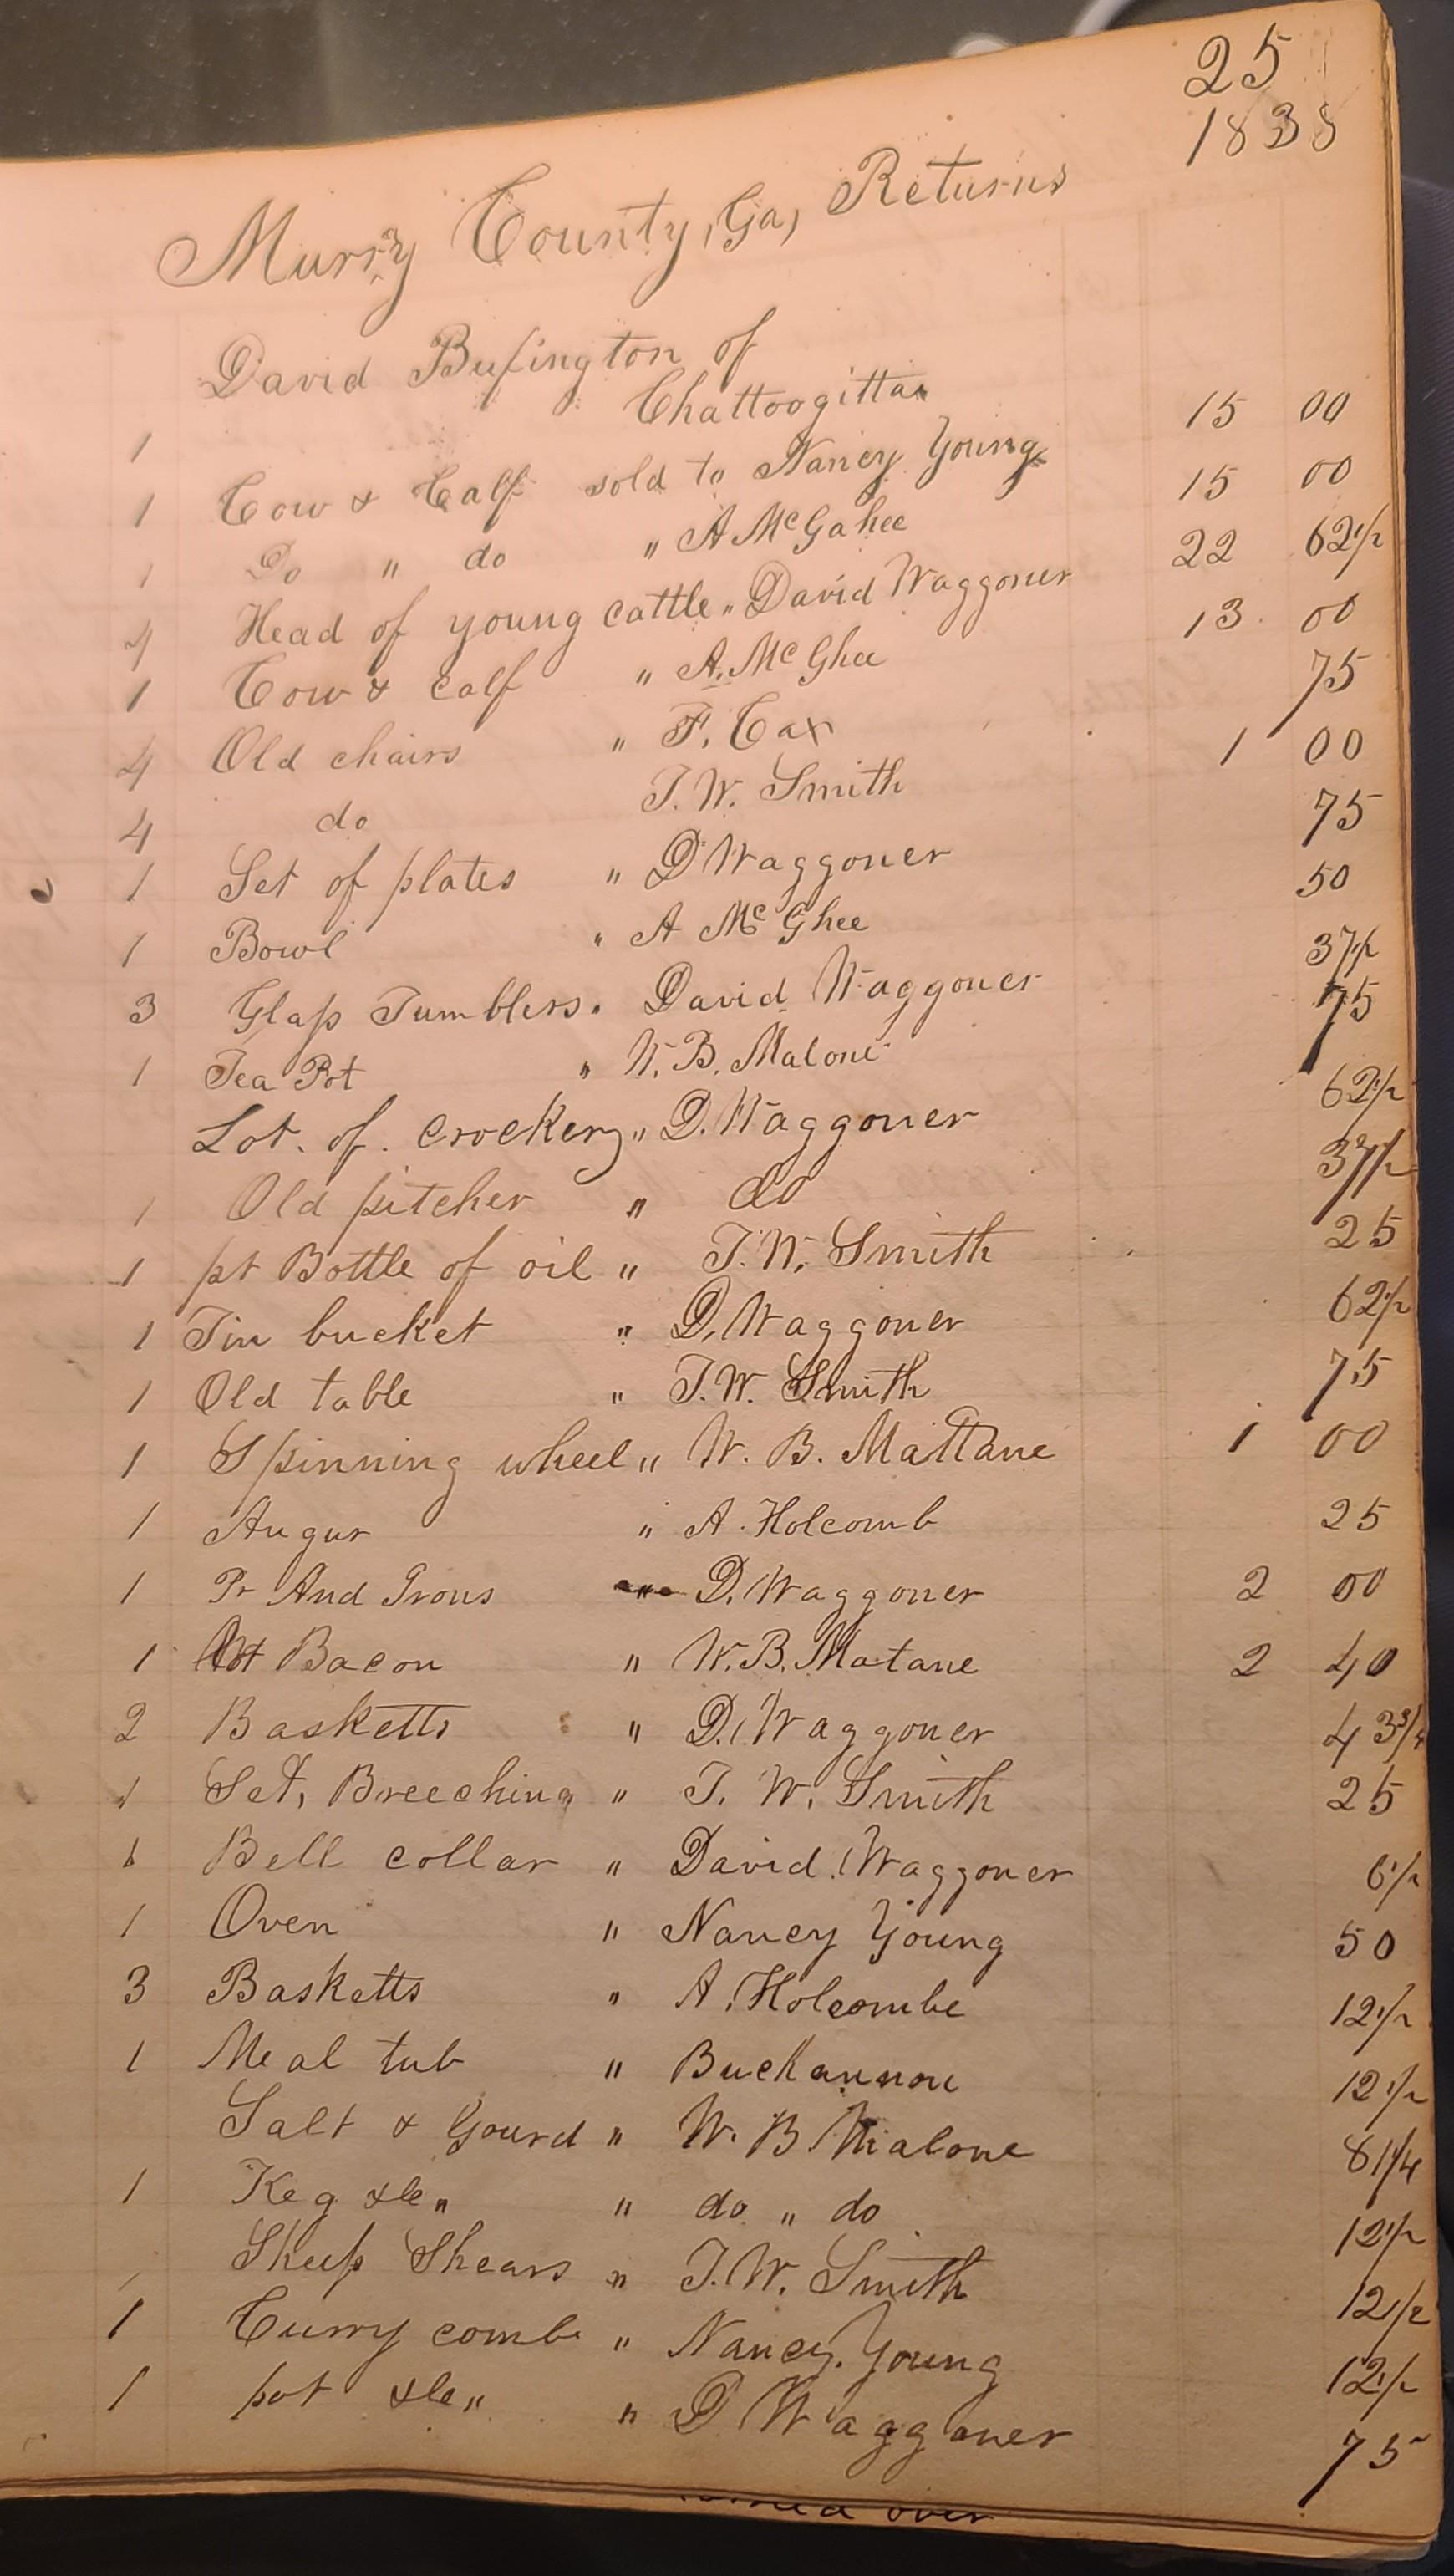 25
1838
Murry County, Ga, Returns
David Bufington of
Chattoogitta
1 Cow & Calf sold to Nancy Young 15 00
1 Do " do " A McGahee 15 00
4 Head of young cattle " David Waggoner 22 62 1/2
1 Cow & calf " A. McGhee 13 00
4 Old chairs " F. Cax 75
4 do T. W. Smith 1 00
1 Set of plates " D Waggoner 75
1 Bowl " A McGhee 50
3 Glass Tumblers " David Waggoner 37 1/2
1 Tea Pot " W. B. Malone 75
Lot. of. crockery " D. Waggoner 62 1/2
1 Old pitcher " do 37 1/2
1 pt Bottle of oil " T. W. Smith 25
1 Tin bucket " D. Waggoner 62 1/2
1 Old table " T. W. Smith 75
1 Spinning wheel " W. B. Mattane 1 00
1 Augur " A. Holcomb 25
1 Pr And Irons D. Waggoner 2 00
1 Bacon " W. B. Matane 2 40
2 Basketts " D. Waggoner 43 3/4
1 Set, Breeching " T. W. Smith 25
1 Bell collar " David Waggoner 6 1/2
1 Oven " Nancy Young 50
3 Basketts " A. Holcombe 12 1/2
1 Meal tub " Buckannon 12 1/2
Salt & Gourd " W. B. Malone 81 1/4
1 Keg &c " " do " do 12 1/2
Sheep Shears " T. W. Smith 12 1/2
1 Curry comb " Nancy. Young 12 1/2
1 pot &c " " D Waggoner 75
over